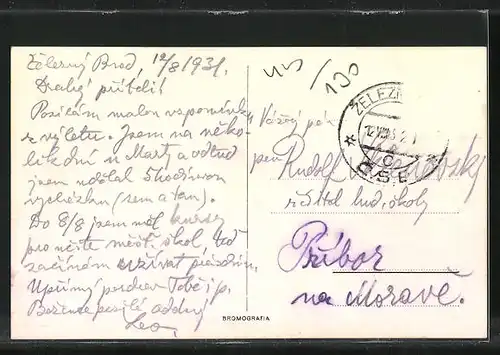 Železný Brod, 12/8 1931.
Drahý příteli!
Posílám malou vzpomínku
z výletu. Jsem na něko-
lik dní u Marty a odtud
jsem udělal
vycházku (sem a tam).
Do 8/8 jsem měl kursy
pro učite měšť. škol, teď
začínám užívat prázdnin.
Upřímný pozdrav Tobě i p.
Božence posílá oddaný
Leo.
45/100
ŽELEZN
ČSR
Vážený pán
pan Rudolf
říditel lud. školy
Příbor
na Moravě.
BROMOGRAFIA